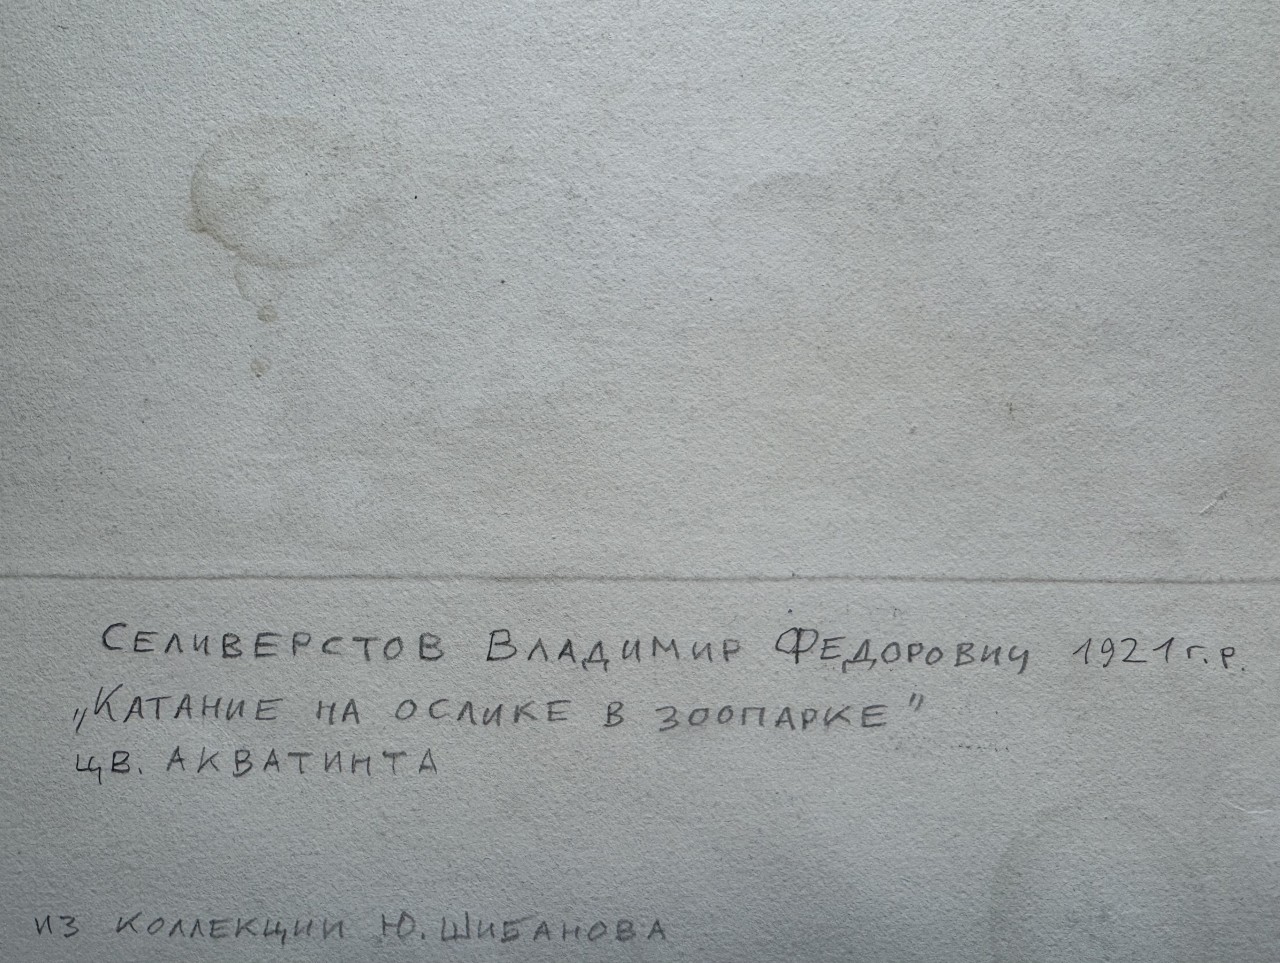 Селиверстов Владимир Федорович 1921 г.р.
„Катание на ослике в зоопарке"
цв. акватинта
из коллекции Ю. Шибанова